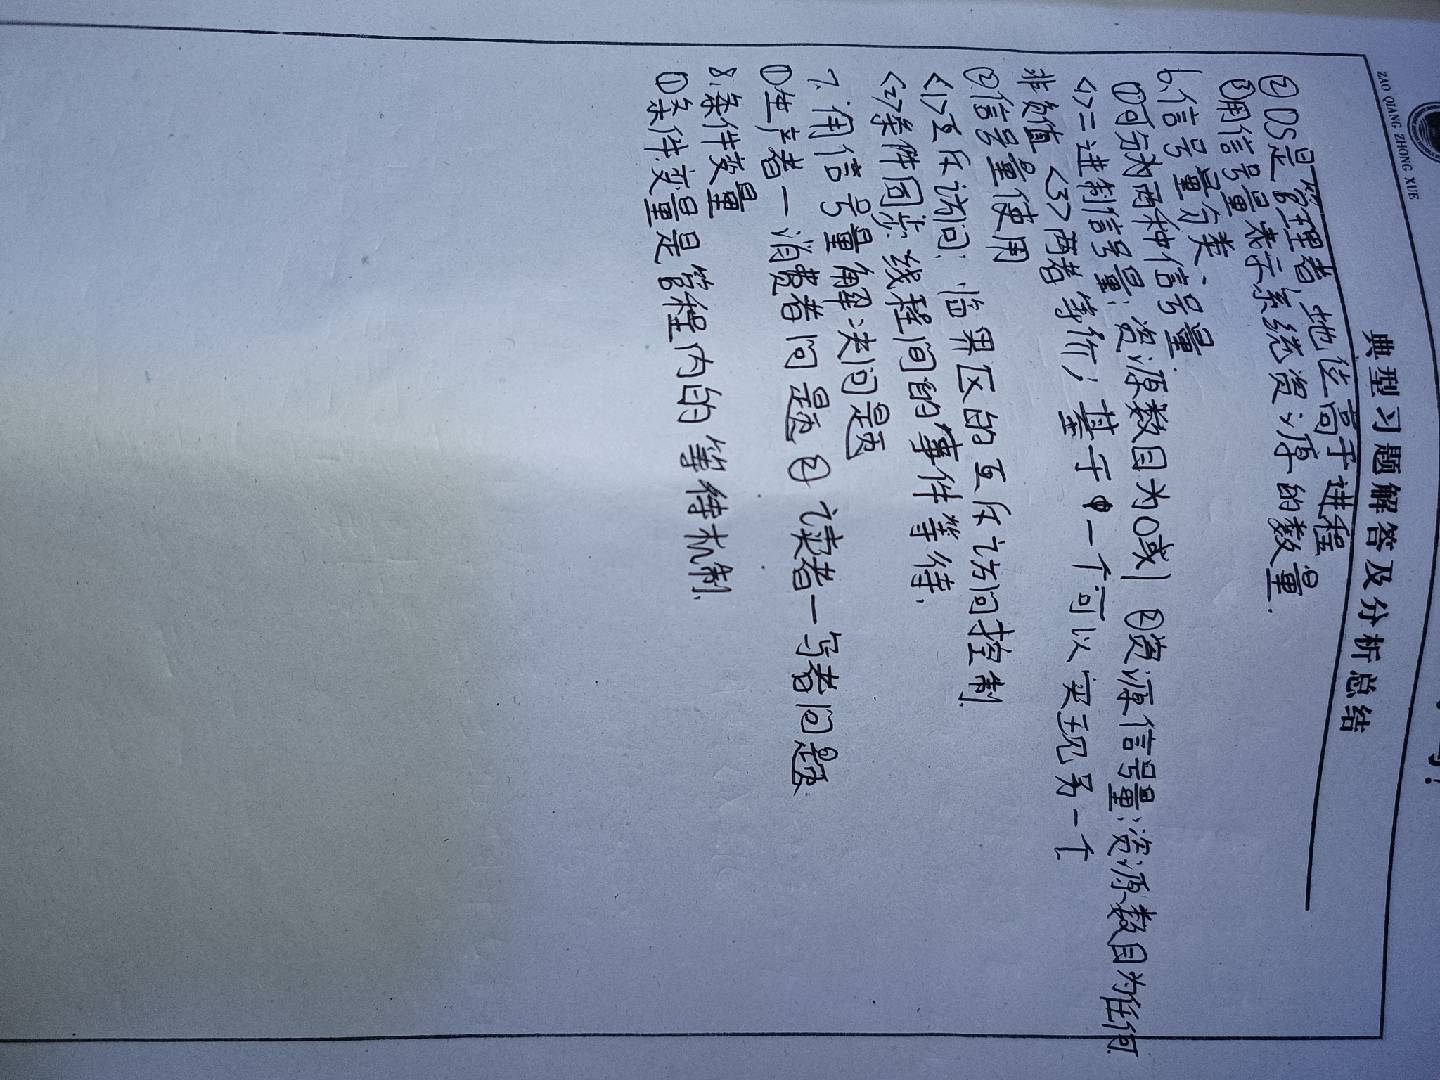 ZAO QIANG ZHONG XUE
典型习题解答及分析总结
②OS是管理者,地位高于进程
③用信号量表示系统资源的数量.
6.信号量分类、
①可分为两种信号量.
<1>二进制信号量:资源数目为0或1 ②资源信号量:资源数目为任何
非负值 <3>两者等价;基于一个可以实现另一个
②信号量使用
<1>互斥访问:临界区的互斥访问控制.
<2>条件同步:线程间的事件等待.
7.用信号量解决问题
①生产者—消费者问题②读者—写者问题.
8.条件变量
①条件变量是管程内的等待机制.